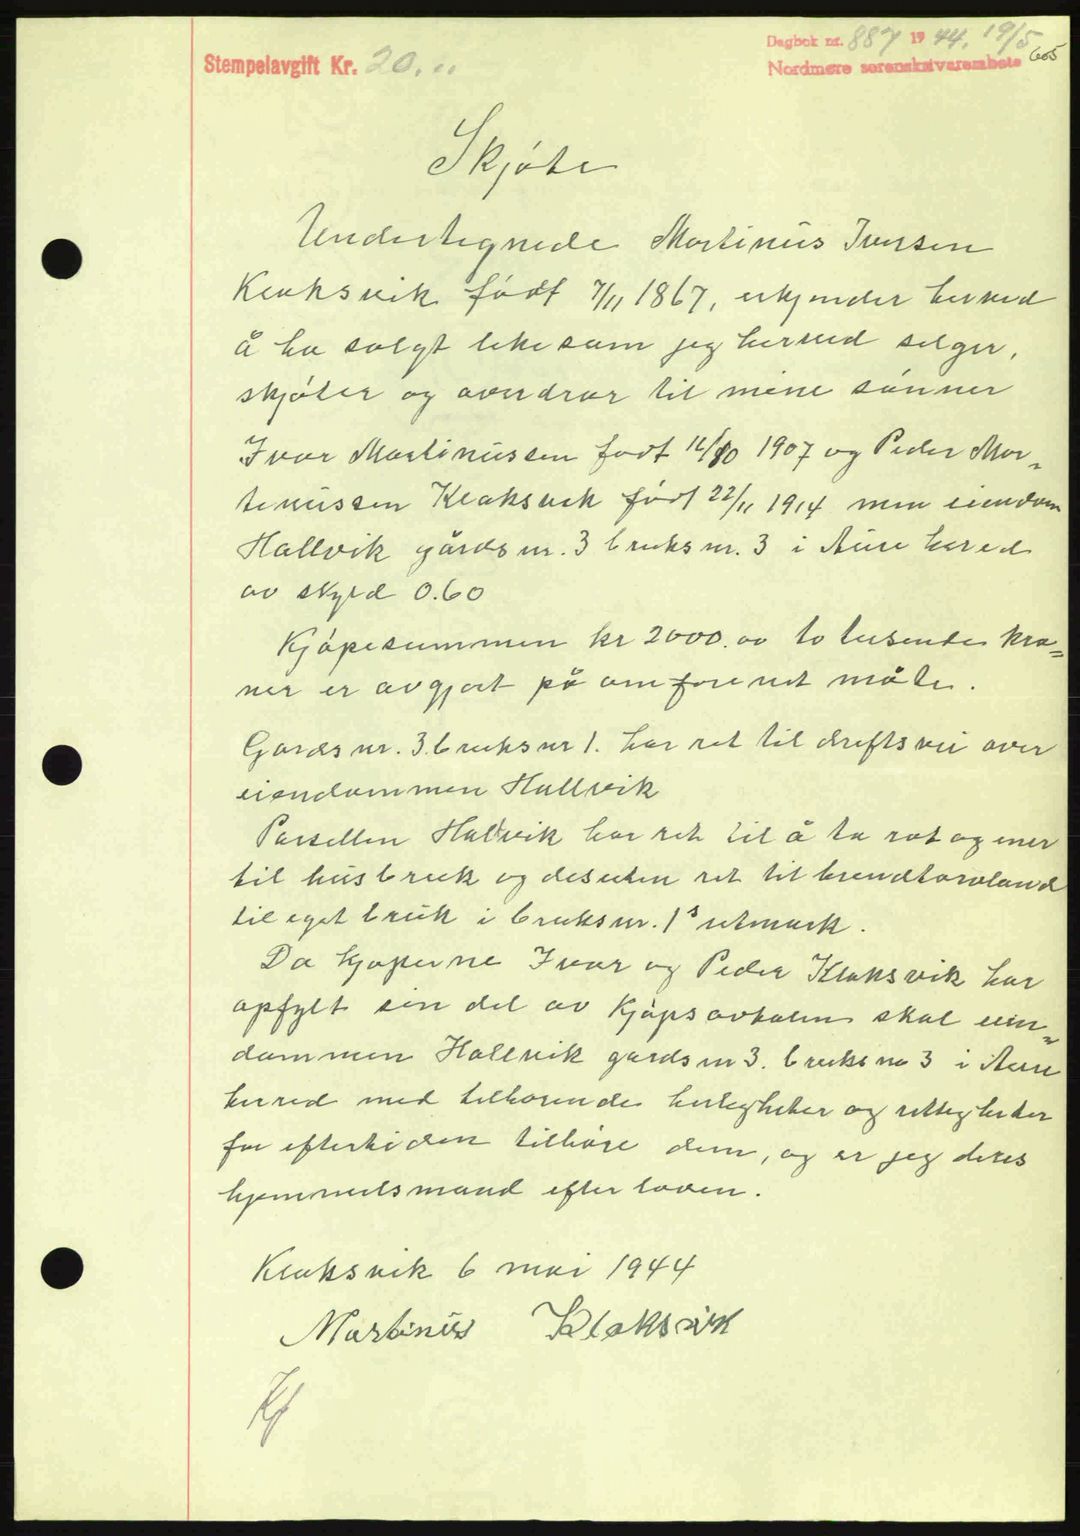 Dagbok nr. 887 19 44. 19/5
Stempelavgift Kr. 20.00
Nordmøre sorenskriverembete 605
Skjøte
Undertegnede Martinus Iversen
Klaksvik født 7/11 1867, erkjender herved
å ha solgt likesom jeg herved selger,
skjøter og overdrar til mine sønner
Ivar Martinussen født 12/10 1907 og Peder Mar-
tinussen Klaksvik født 22/11 1914 min eiendom
Hallvik gårdsnr. 3 bruksnr. 3 i Aure hered
av skyld 0.60
Kjøpesummen kr 2000.00 to tusende kro=
ner er avgjort på omforenet måte.
Gardsnr. 3 bruksnr 1. har ret til driftsvei over
eiendommen Hallvik
Parsellen Hallvik har ret til å ta rot og
til husbruk og desuten ret til brendtorvland
til eget bruk i bruksnr. 1s utmark.
Da kjøperne Ivar og Peder Klaksvik har
opfylt sin del av kjøpsavtalen skal eien=
dommen Hallvik gardsnr 3. bruksnr 3 i Aure
herred med tilhørende herligheter og rettigheter
for eftertiden tilhøre dem, og er jeg deres
hjemmelsmand efter loven.
Klaksvik 6 mai 1944
Martinus Klaksvik